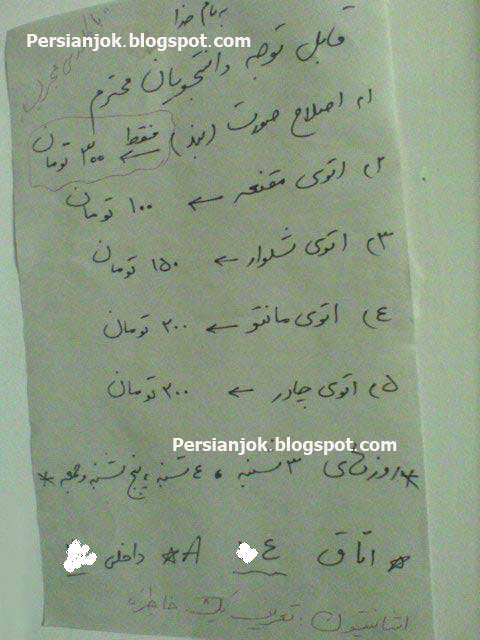 به نام خدا
Persianjok.blogspot.com
قابل توجه دانشجویان محترم
۱) اصلاح صورت (بند) ← فقط ۳۰۰ تومان
۲) اتوی مقنعه ← ۱۰۰ تومان
۳) اتوی شلوار ← ۱۵۰ تومان
۴) اتوی مانتو ← ۲۰۰ تومان
۵) اتوی چادر ← ۲۰۰ تومان
Persianjok.blogspot.com
* روزهای ۳ شنبه ، ۴ شنبه ، پنج شنبه و جمعه *
* اتاق ۴ A * داخلی
تعریف یک خاطره